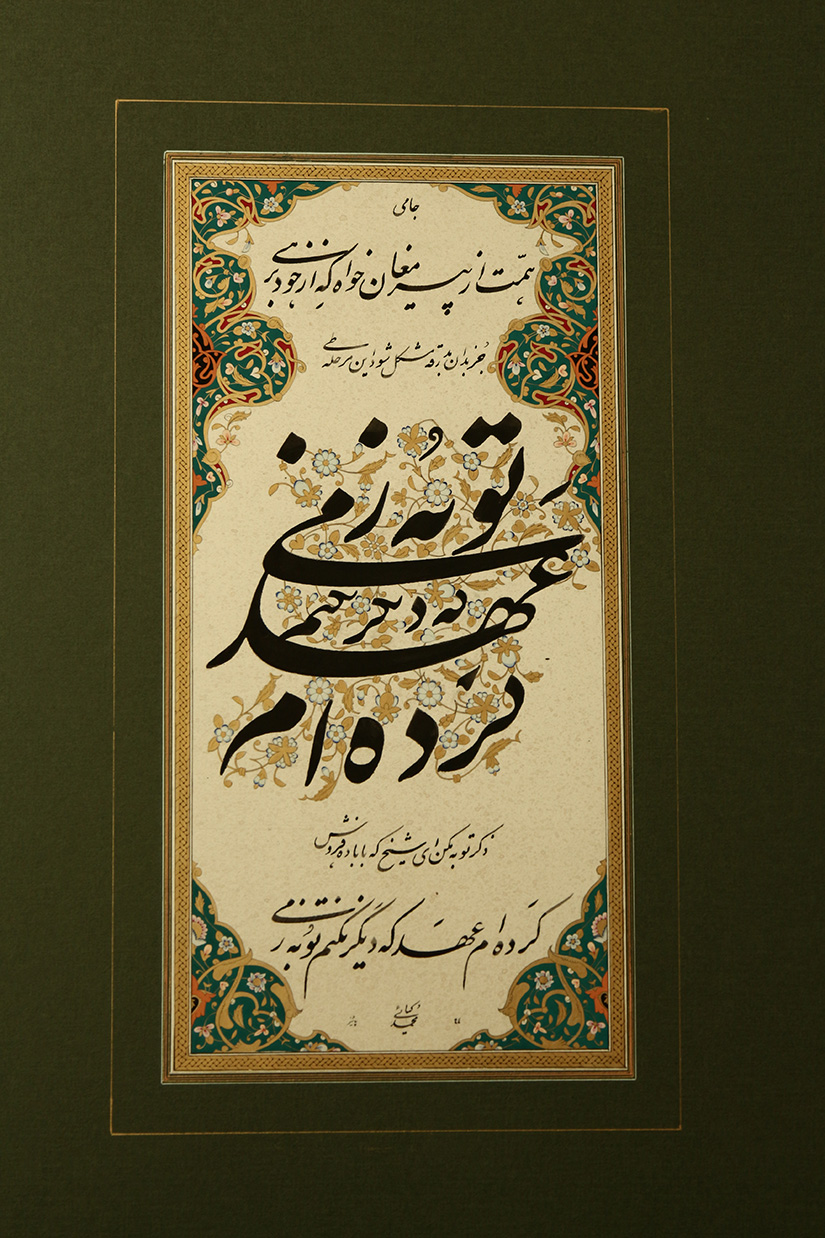 جامی
همّت از پیر مغان خواه که از خود برهی
جز بدان بدرقه مشکل شود این مرحله طی
توبه ز می
که دیگر نکنم
عهد
کرده ام
ذکر توبه مکن ای شیخ که با باده فروش
کرده ام عهد که دیگر نکنم توبه ز می